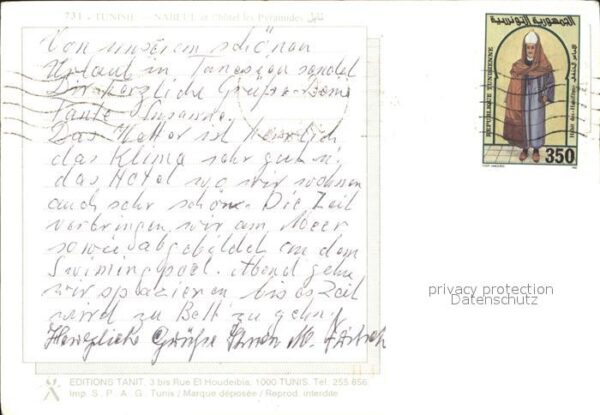 731 - TUNISIE - NABEUL et l'hôtel les Pyramides نابل
Von unserem schönen
Urlaub in Tunesien sendet
Dir herzliche Grüße Deine
Tante Susanne.
Das Wetter ist herrlich
das Klima sehr gut u.
das Hotel wo wir wohnen
auch sehr schön. Die Zeit
verbringen wir am Meer
sowie abgebildet an dem
Swimingpool. Abend gehn
wir spazieren bis es Zeit
wird zu Bett zu gehn.
Herzliche Grüße M.
الجمهورية التونسية
REPUBLIQUE TUNISIENNE
350
privacy protection
Datenschutz
EDITIONS TANIT, 3 bis Rue El Houdeibia, 1000 TUNIS. Tél. 255.656
Imp. S. P. A. G. Tunis / Marque déposée / Reprod. interdite